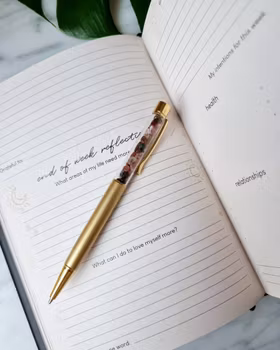 Grateful for
end of week reflecti
What areas of my life need more
What can I do to love myself more?
word
My intentions for this week
health
relationships